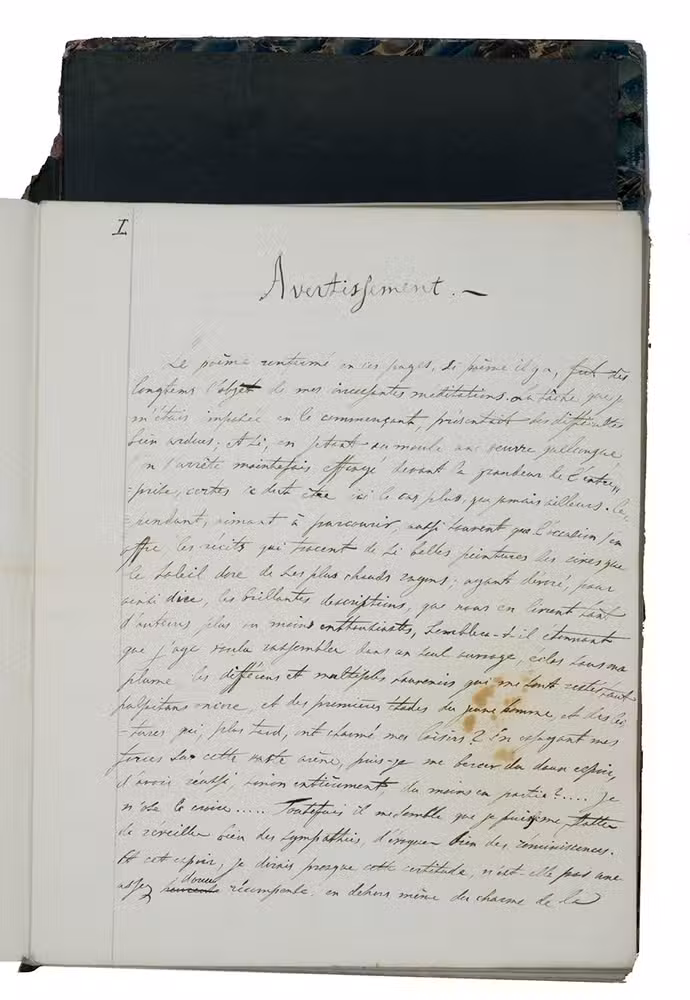 I
Avertissement. —
Le poëme renfermé en ces pages, si poëme il y a, fut dès
longtems l'objet de mes incessantes méditations. La tâche que je
m'étais imposée en le commençant, présentait des difficultés
bien ardues. Et si, en jetant au moule une œuvre quelconque
on s'arrête maintefois effrayé devant la grandeur de l'entre-
-prise, certes ce dut être ici le cas plus que jamais ailleurs. Ce-
-pendant, aimant à parcourir, aussi souvent que l'occasion s'en
offre les récits qui tracent de si belles peintures des rives que
le soleil dore de ses plus chauds rayons; ayant dévoré, pour
ainsi dire, les brillantes descriptions, que nous en livrent tant
d'auteurs plus ou moins enthousiastes, semblera-t-il étonnant
que j'aye voulu rassembler dans un seul ouvrage, éclos sous ma
plume les différens et multiples souvenirs qui me sont restés tout
palpitans encore, et des premières études du jeune homme, et des lec-
-tures qui, plus tard, ont charmé mes loisirs? En essayant mes
forces sur cette vaste arène, puis-je me bercer du doux espoir,
d'avoir réussi, sinon entièrement, du moins en partie?.... Je
n'ose le croire..... Toutefois il me semble que je puis me flatter
de réveiller bien des sympathies, d'évoquer bien des réminiscences.
Et cet espoir, je dirais presque cette certitude, n'est-elle pas une
assez douce récompense en dehors même du charme de la